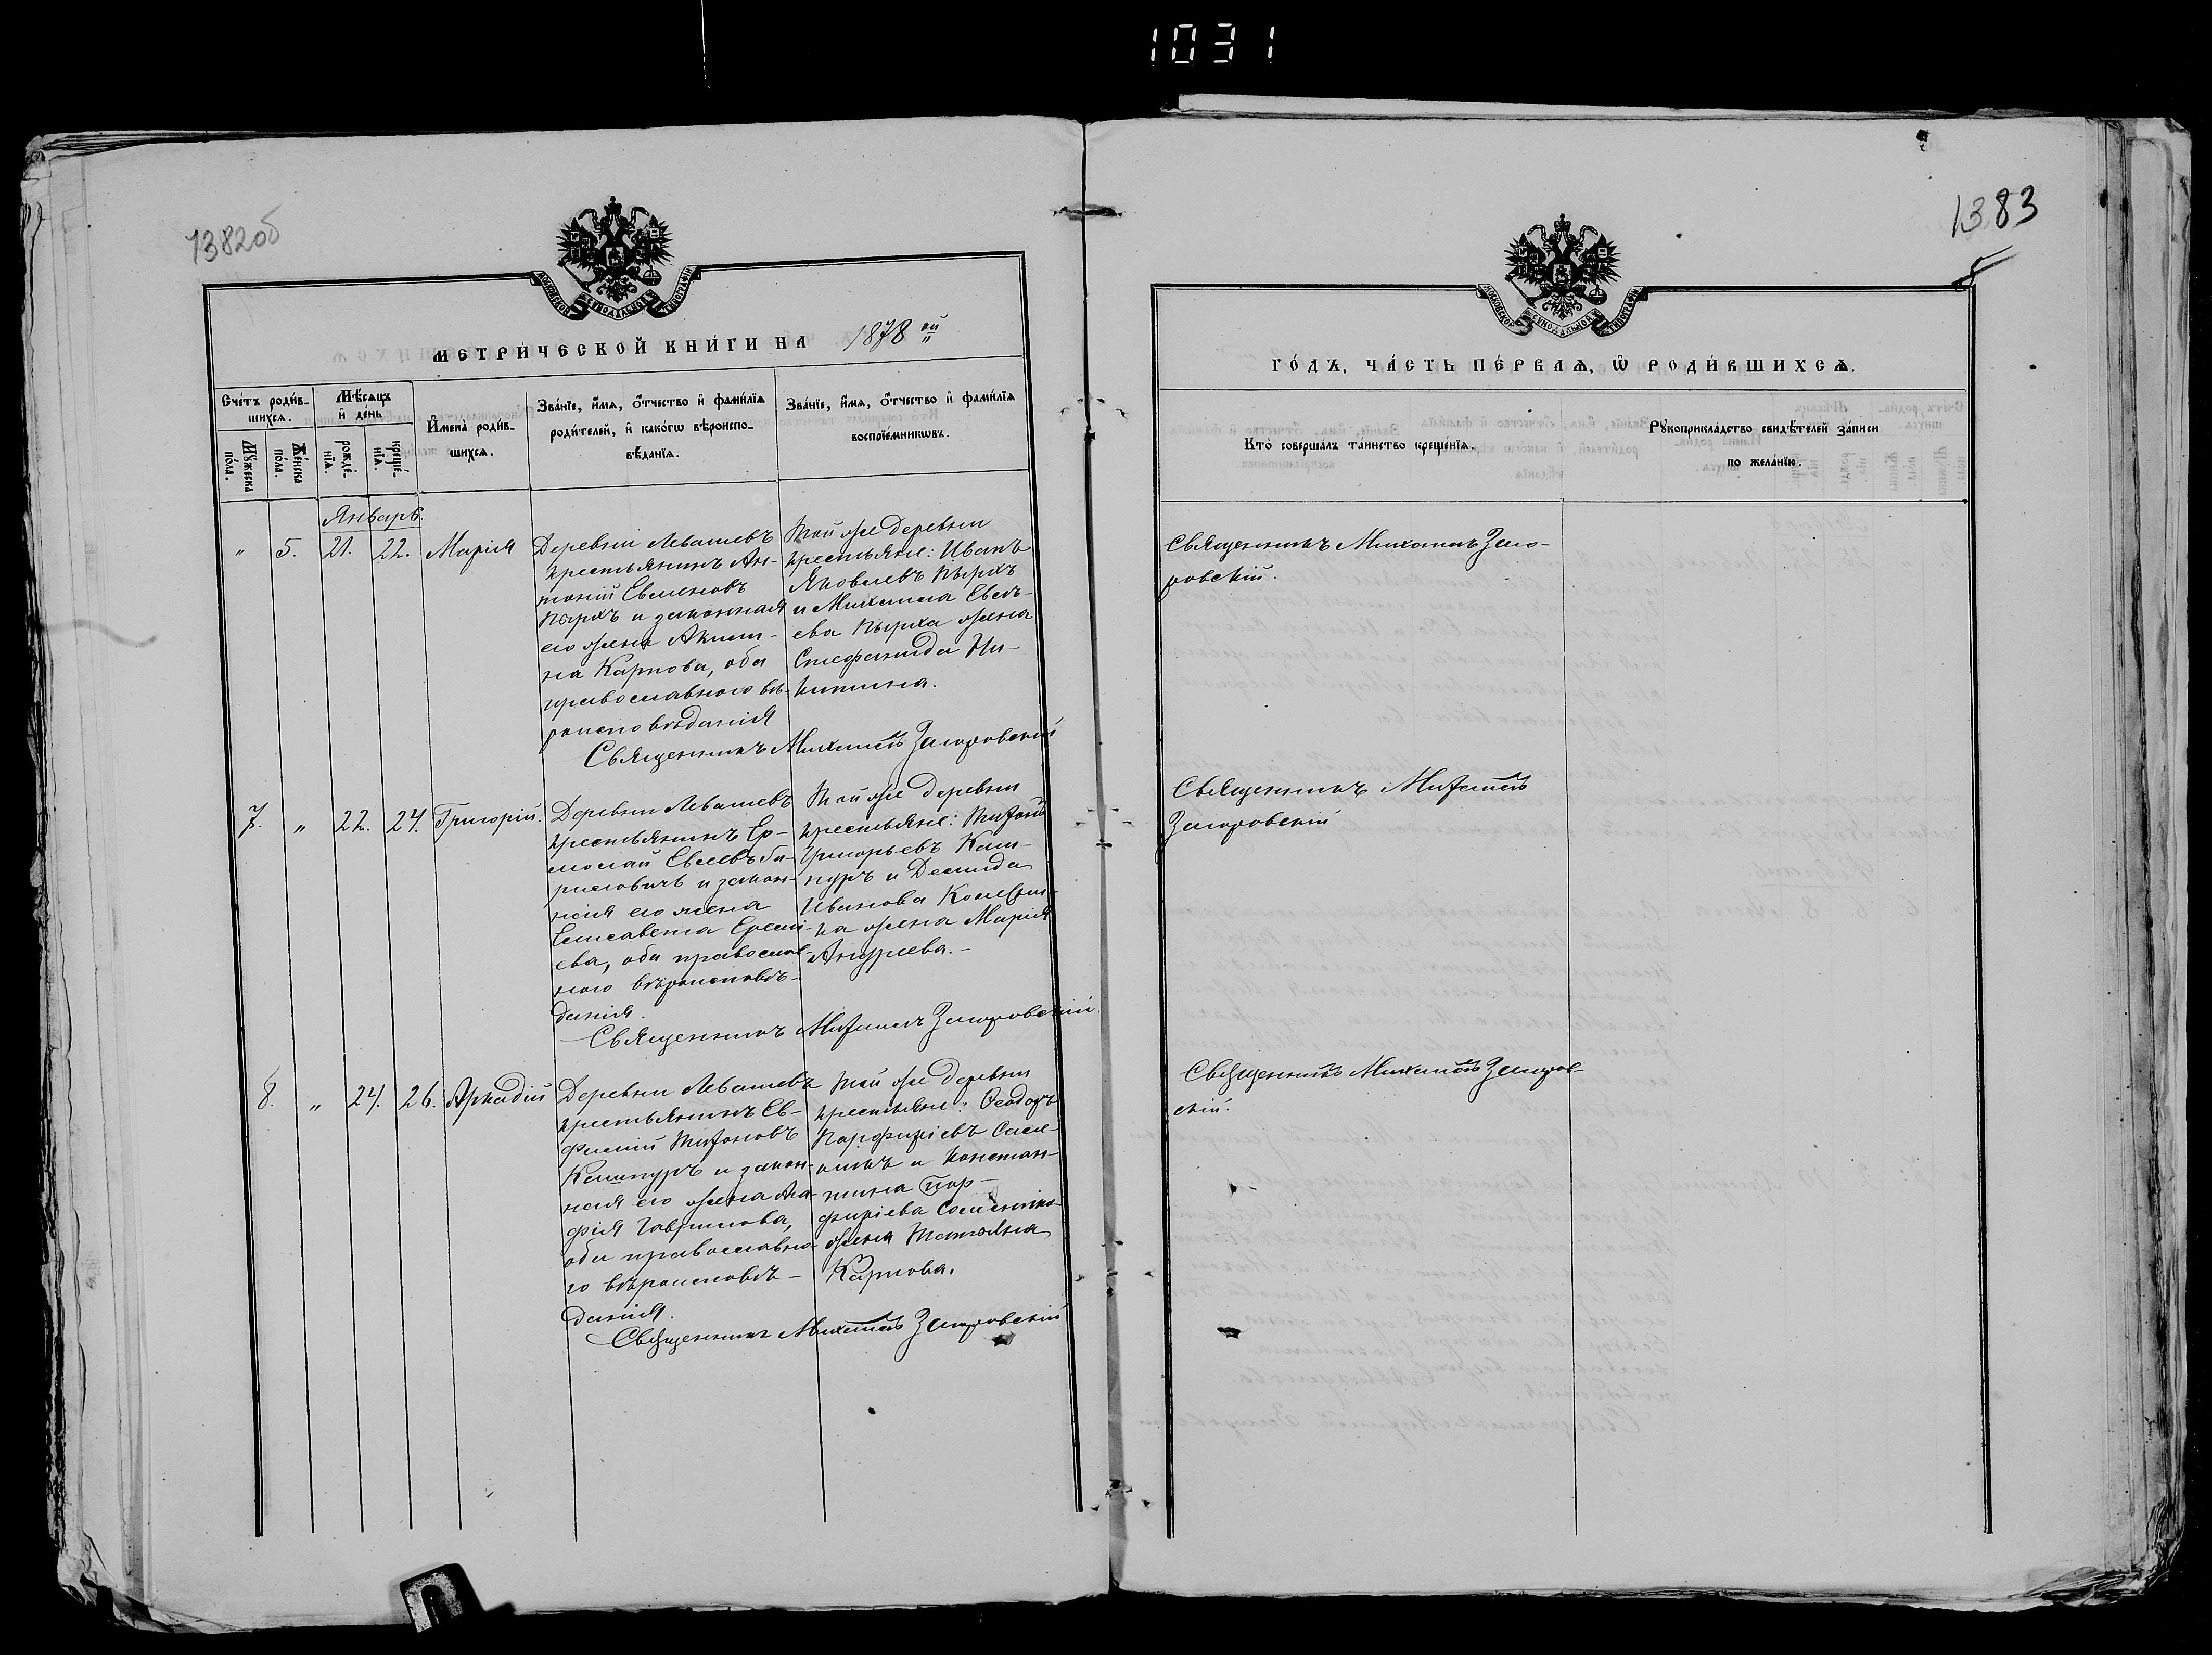 1031
1382об
1383
МОСКОВСКОЙ СѴНОДАЛЬНОЙ ТИПОГРАФІИ
МЕТРИ́ЧЕСКОЙ КНИ́ГИ НА 1878 ой
Сче́тъ роди́в-
шихсѧ.
Мꙋ́жеска по́ла.
Же́нска по́ла.
Мѣ́сѧцъ
и҆ де́нь
рожде́-
нїѧ.
креще́-
нїѧ.
И҆мена̀ роди́в-
шихсѧ.
Зва́нїе, и҆́мѧ, ѻ҆́тчество и҆ фами́лїѧ
роди́телей, и҆ како́гѡ вѣроиспо-
вѣ́данїѧ.
Зва́нїе, и҆́мѧ, ѻ҆́тчество и҆ фами́лїѧ
воспрїе́мникѡвъ.
Январь.
" 5. 21. 22. Марія
Деревни Левашевъ
крестьянинъ Ан-
тоній Евсеновъ
Пырхъ и законная
его жена Акили-
на Карпова, оба
православного вѣ-
роисповѣданія
Той же деревни
крестьяне: Иванъ
Яковлевъ Пырхъ
и Михаила Евсѣ-
ева Пырха жена
Стефанида Ни-
китина.
Священникъ Михаилъ Загоровскій
7. " 22. 24. Григорій.
Деревни Левашевъ
крестьянинъ Ер-
молай Евсеевъ
и закон-
ная его жена
Елисавета Ереми-
ева, оба православ-
ного вѣроисповѣ-
данія.
Той же деревни
крестьяне: Тихонъ
Григорьевъ Каш-
пуръ и Демида
Иванова
жена Марія
Андреева.-
Священникъ Михаилъ Загоровскій.
8. " 24. 26. Аркадій
Деревни Левашевъ
крестьянинъ Ев-
фимій Тихоновъ
Кашпуръ и закон-
ная его жена Ага-
фія Гаврилова,
оба православно-
го вѣроисповѣ-
данія.
Той же деревни
крестьяне: Ѳеодоръ
Порфиріевъ
и Констан-
тина Пор-
фиріева
жена Татьяна
Карпова.
Священникъ Михаилъ Загоровскій
МОСКОВСКОЙ СѴНОДАЛЬНОЙ ТИПОГРАФІИ
ГО́ДЪ, ЧА́СТЬ ПЕ́РВАѦ, Ѡ҆ РОДИ́ВШИХСѦ.
Кто̀ соверша́лъ та́инство креще́нїѧ.
Рꙋкоприкла́дство свидѣ́телей за́писи
по жела́нїю.
Священникъ Михаилъ Заго-
ровскій.
Священникъ Михаилъ
Загоровскій
Священникъ Михаилъ Загоров-
скій.